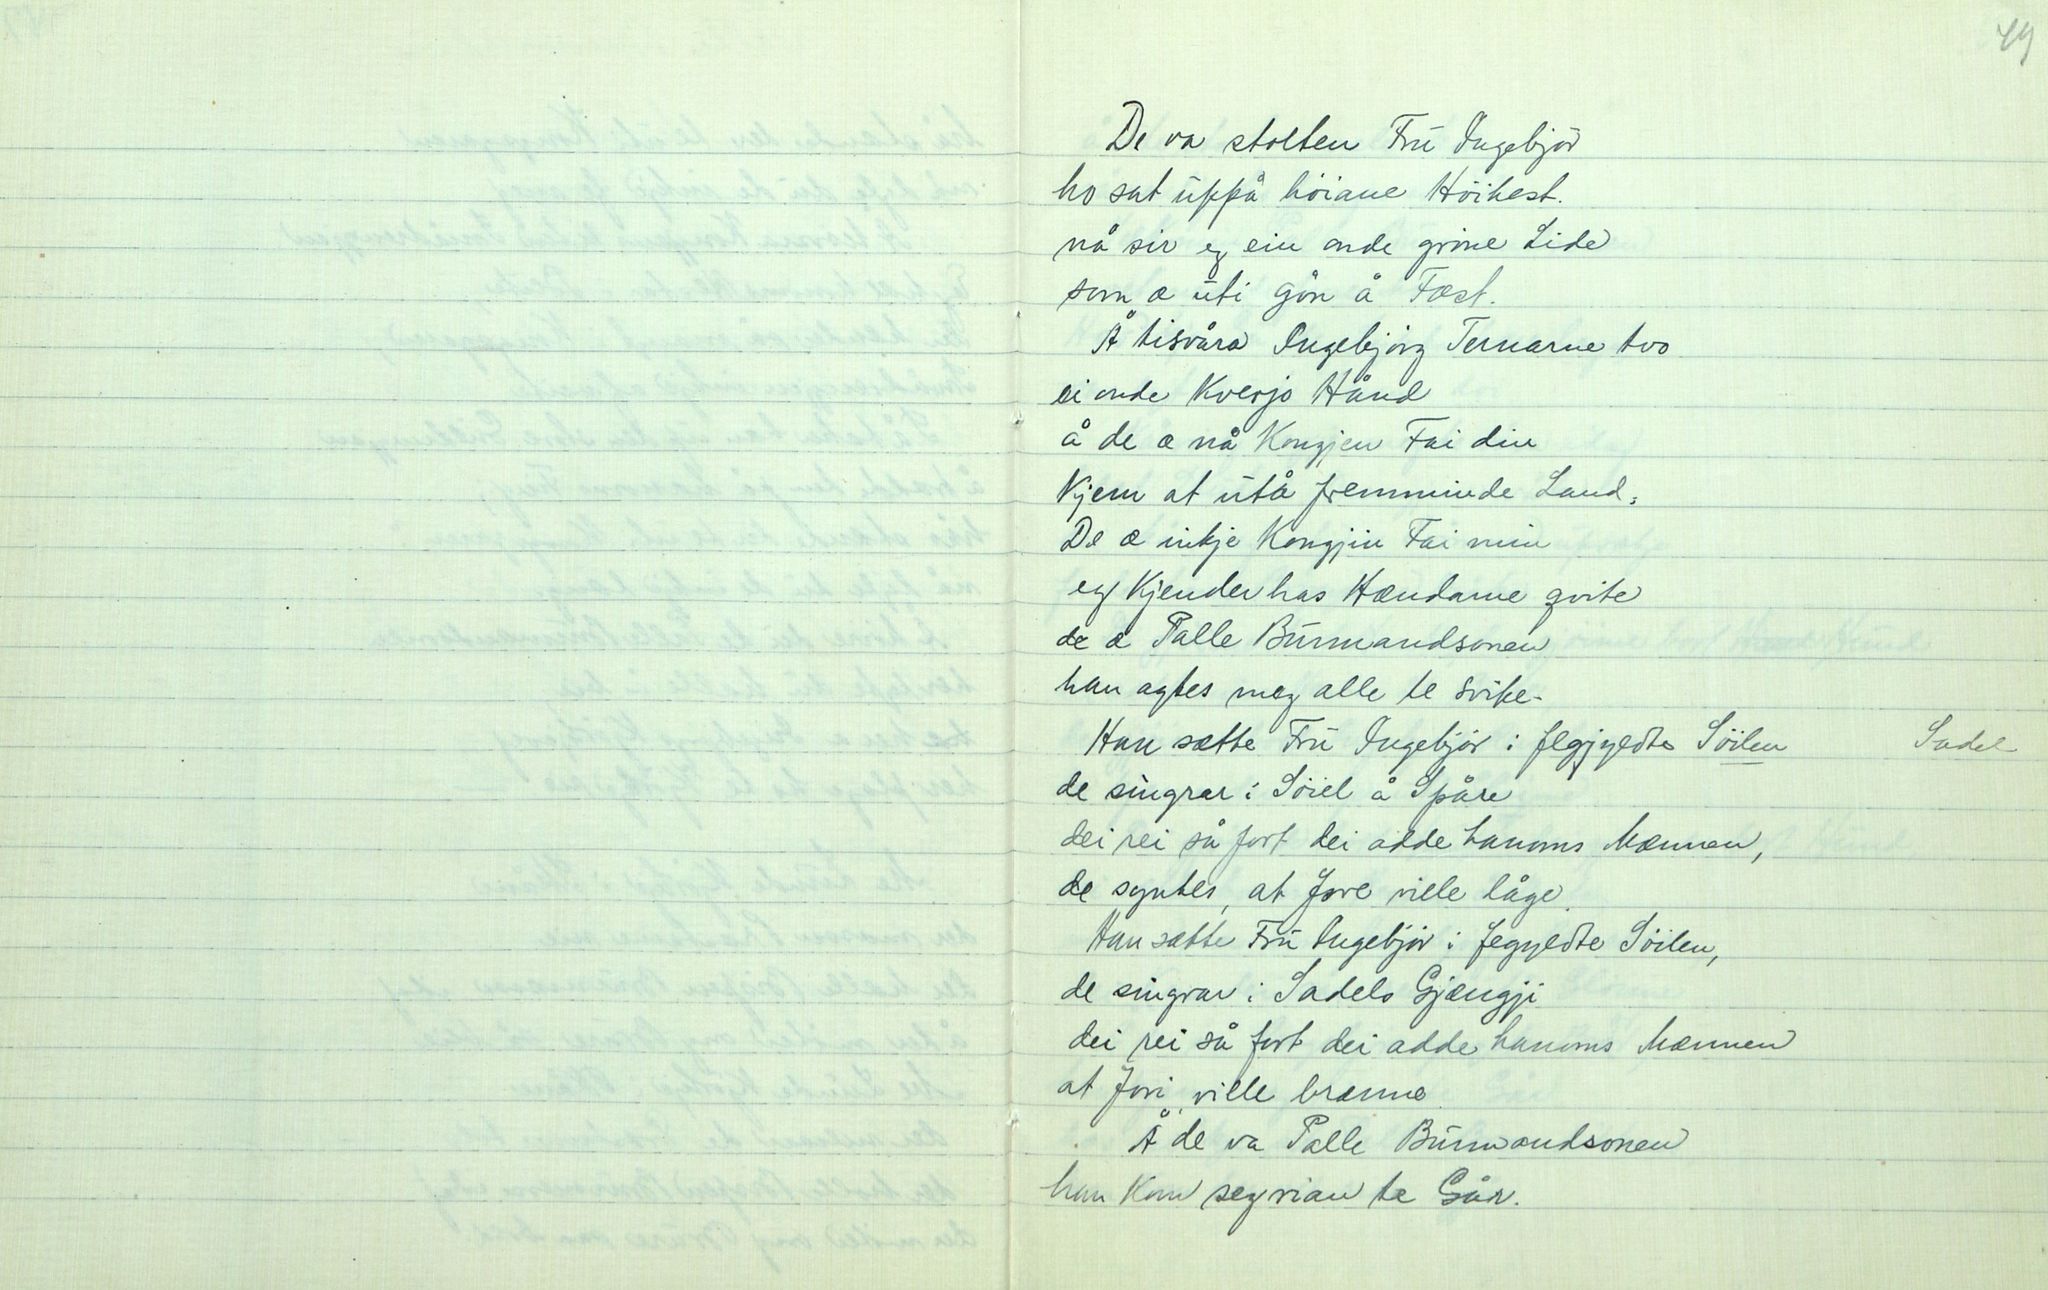 49
De va stolten Frú Ingebjör
ho sat úppå höiane Höihest.
nå sir eg ein onde grine Lide
som æ úti gön å Fæst.
Å tisvåra Ingebjörg Ternarne tvo
ei onde Kverjo Hånd
å de æ nå Kongjen Fai din
Kjem at útå fremminde Land,
De æ inkje Kongjin Fai min
eg Kjender has Hændarne qvite
de æ Palle Búrmandsonen
han agtes meg alle te svike.
Han sætte Frú Ingebjör i flegjyldte Söilen Sadel
de singrar i Söiel å Spåre
dei rei så fort dei adde hanoms Mænnen,
de syntes, at Jore ville låge
Han sætte Frú Ingebjör i fegyldte Söilen,
de singrar i Sadels Gjængji
dei rei så fort dei adde hanoms Mænnen
at Jori ville brænne
Å de va Palle Búrmandsonen
han Kom seg rian te Går.